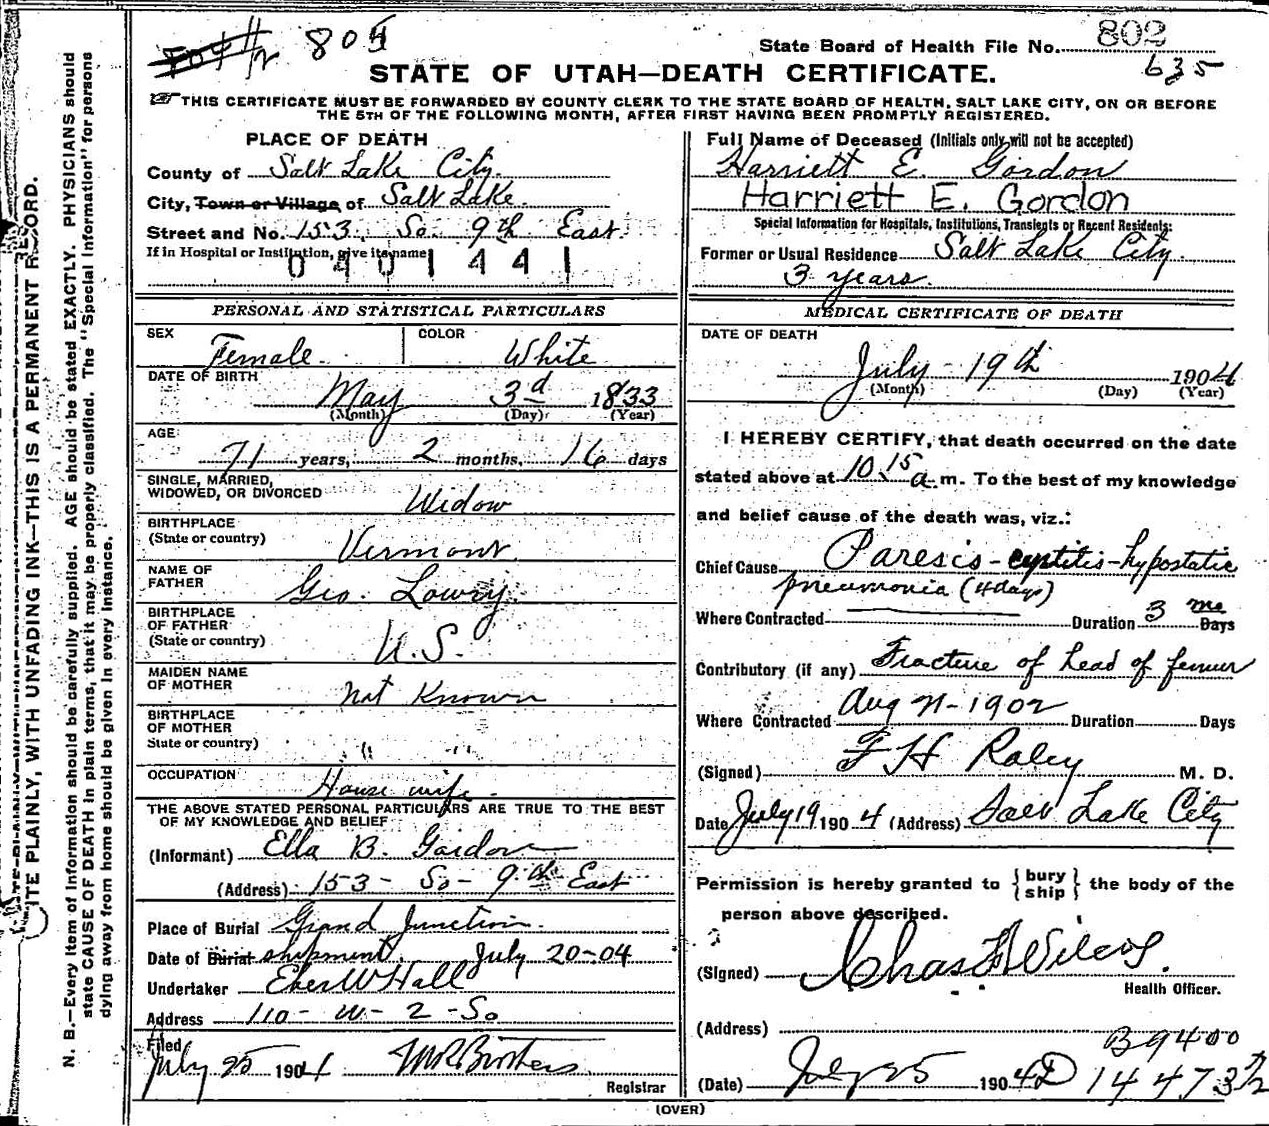 805
State Board of Health File No. 802
635
STATE OF UTAH—DEATH CERTIFICATE.
THIS CERTIFICATE MUST BE FORWARDED BY COUNTY CLERK TO THE STATE BOARD OF HEALTH, SALT LAKE CITY, ON OR BEFORE
THE 5TH OF THE FOLLOWING MONTH, AFTER FIRST HAVING BEEN PROMPTLY REGISTERED.
PLACE OF DEATH
County of Salt Lake City.
City, Town or Village of Salt Lake.
Street and No. 153 So. 9th East.
If in Hospital or Institution, give its name
0401441
Full Name of Deceased (Initials only will not be accepted)
Harriett E. Gordon
Harriett E. Gordon
Special Information for Hospitals, Institutions, Transients or Recent Residents:
Former or Usual Residence Salt Lake City.
3 years.
PERSONAL AND STATISTICAL PARTICULARS
SEX Female
COLOR White
DATE OF BIRTH May 3d 1833
(Month) (Day) (Year)
AGE 71 years, 2 months, 16 days
SINGLE, MARRIED,
WIDOWED, OR DIVORCED Widow
BIRTHPLACE
(State or country) Vermont.
NAME OF
FATHER Geo. Lowry
BIRTHPLACE
OF FATHER
(State or country) U.S.
MAIDEN NAME
OF MOTHER not Known
BIRTHPLACE
OF MOTHER
State or country) " "
OCCUPATION House wife.
THE ABOVE STATED PERSONAL PARTICULARS ARE TRUE TO THE BEST
OF MY KNOWLEDGE AND BELIEF
(Informant) Ella B. Gordon
(Address) 153 - So - 9th East
Place of Burial Grand Junction.
Date of Burial shipment. July 20-04
Undertaker Eber W Hall
Address 110 - W - 2 - So
Filed
July 25 1904
Registrar
MEDICAL CERTIFICATE OF DEATH
DATE OF DEATH
July - 19th 1904
(Month) (Day) (Year)
I HEREBY CERTIFY, that death occurred on the date
stated above at 10 15 a.m. To the best of my knowledge
and belief cause of the death was, viz.:
Chief Cause Paresis - cystitis - hypostatic
pneumonia (4 days)
Where Contracted Duration 3 mo Days
Contributory (if any) Fracture of head of femur
Where Contracted Aug 21-1902 Duration Days
(Signed) F H Raley M. D.
Date July 19 1904 (Address) Salt Lake City
Permission is hereby granted to { bury ship } the body of the
person above described.
(Signed) Chas Wilcox.
Health Officer.
(Address)
B9400
(Date) July 25 1904 D 14473
(OVER)
ITE PLAINLY, WITH UNFADING INK—THIS IS A PERMANENT RECORD.
N. B.—Every item of information should be carefully supplied. AGE should be stated EXACTLY. PHYSICIANS should
state CAUSE OF DEATH in plain terms, that it may be properly classified. The "Special Information" for persons
dying away from home should be given in every instance.